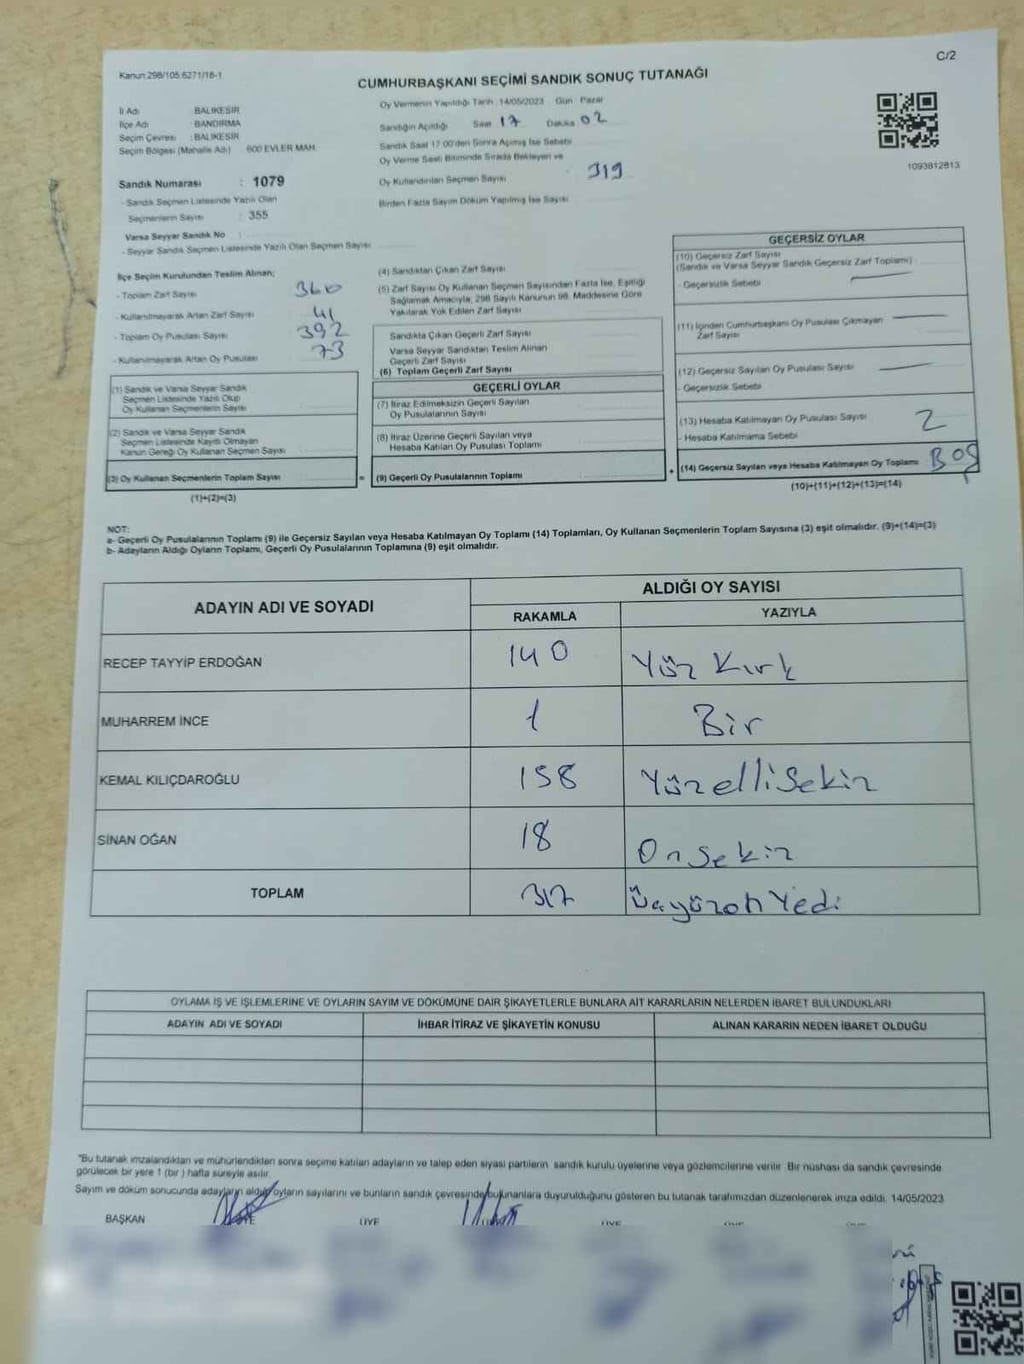 C/2
Kanun:298/105.6271/16-1
CUMHURBAŞKANI SEÇİMİ SANDIK SONUÇ TUTANAĞI
İl Adı : BALIKESİR
İlçe Adı : BANDIRMA
Seçim Çevresi : BALIKESİR
Seçim Bölgesi (Mahalle Adı) 600 EVLER MAH.
Sandık Numarası : 1079
- Sandık Seçmen Listesinde Yazılı Olan
Seçmenlerin Sayısı : 355
Varsa Seyyar Sandık No :
- Seyyar Sandık Seçmen Listesinde Yazılı Olan Seçmen Sayısı
Oy Vermenin Yapıldığı Tarih :14/05/2023 Gün Pazar
Sandığın Açıldığı Saat 17 Dakika 02
Sandık Saat 17:00'den Sonra Açılmış İse Sebebi
Oy Verme Saati Bitiminde Sırada Bekleyen ve
Oy Kullandırılan Seçmen Sayısı 319
Birden Fazla Sayım Döküm Yapılmış İse Sayısı
1093812813
İlçe Seçim Kurulundan Teslim Alınan;
- Toplam Zarf Sayısı 360
- Kullanılmayarak Artan Zarf Sayısı 41
- Toplam Oy Pusulası Sayısı 392
- Kullanılmayarak Artan Oy Pusulası 73
(1) Sandık ve Varsa Seyyar Sandık
Seçmen Listesinde Yazılı Olup
Oy Kullanan Seçmenlerin Sayısı
(2) Sandık ve Varsa Seyyar Sandık
Seçmen Listesinde Kayıtlı Olmayan
Kanun Gereği Oy Kullanan Seçmen Sayısı
(3) Oy Kullanan Seçmenlerin Toplam Sayısı =
(1)+(2)=(3)
(4) Sandıktan Çıkan Zarf Sayısı
(5) Zarf Sayısı Oy Kullanan Seçmen Sayısından Fazla İse, Eşitliği
Sağlamak Amacıyla, 298 Sayılı Kanunun 98. Maddesine Göre
Yakılarak Yok Edilen Zarf Sayısı
Sandıkta Çıkan Geçerli Zarf Sayısı
Varsa Seyyar Sandıktan Teslim Alınan
Geçerli Zarf Sayısı
(6) Toplam Geçerli Zarf Sayısı
GEÇERLİ OYLAR
(7) İtiraz Edilmeksizin Geçerli Sayılan
Oy Pusulalarının Sayısı
(8) İtiraz Üzerine Geçerli Sayılan veya
Hesaba Katılan Oy Pusulası Toplamı
(9) Geçerli Oy Pusulalarının Toplamı +
GEÇERSİZ OYLAR
(10) Geçersiz Zarf Sayısı
(Sandık ve Varsa Seyyar Sandık Geçersiz Zarf Toplamı)
- Geçersizlik Sebebi
(11) İçinden Cumhurbaşkanı Oy Pusulası Çıkmayan
Zarf Sayısı
(12) Geçersiz Sayılan Oy Pusulası Sayısı
- Geçersizlik Sebebi
(13) Hesaba Katılmayan Oy Pusulası Sayısı 2
- Hesaba Katılmama Sebebi
(14) Geçersiz Sayılan veya Hesaba Katılmayan Oy Toplamı BOŞ
(10)+(11)+(12)+(13)=(14)
NOT:
a- Geçerli Oy Pusulalarının Toplamı (9) ile Geçersiz Sayılan veya Hesaba Katılmayan Oy Toplamı (14) Toplamları, Oy Kullanan Seçmenlerin Toplam Sayısına (3) eşit olmalıdır. (9)+(14)=(3)
b- Adayların Aldığı Oyların Toplamı, Geçerli Oy Pusulalarının Toplamına (9) eşit olmalıdır.
ADAYIN ADI VE SOYADI
ALDIĞI OY SAYISI
RAKAMLA YAZIYLA
RECEP TAYYİP ERDOĞAN 140 Yüz Kırk
MUHARREM İNCE 1 Bir
KEMAL KILIÇDAROĞLU 158 YüzelliSekiz
SİNAN OĞAN 18 OnSekiz
TOPLAM 317 ÜçyüzonYedi
OYLAMA İŞ VE İŞLEMLERİNE VE OYLARIN SAYIM VE DÖKÜMÜNE DAİR ŞİKAYETLERLE BUNLARA AİT KARARLARIN NELERDEN İBARET BULUNDUKLARI
ADAYIN ADI VE SOYADI İHBAR İTİRAZ VE ŞİKAYETİN KONUSU ALINAN KARARIN NEDEN İBARET OLDUĞU
"Bu tutanak imzalandıktan ve mühürlendikten sonra seçime katılan adayların ve talep eden siyasi partilerin sandık kurulu üyelerine veya gözlemcilerine verilir. Bir nüshası da sandık çevresinde
görülecek bir yere 1 (bir) hafta süreyle asılır.
Sayım ve döküm sonucunda adayların aldığı oyların sayılarını ve bunların sandık çevresinde bulunanlara duyurulduğunu gösteren bu tutanak tarafımızdan düzenlenerek imza edildi. 14/05/2023
BAŞKAN ÜYE